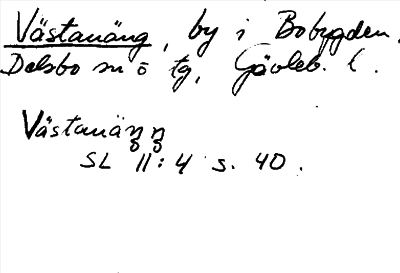 Västanäng, by i Bobygden,
Delsbo sn o tg, Gävleb. l.
Västanäŋŋ
SL II:4 s. 40.